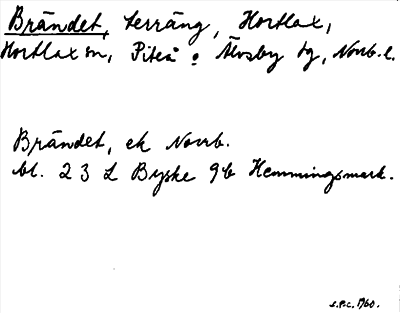 Brändet, terräng, Hortlax,
Hortlax sn, Piteå o Älvsby tg, Norrb. l.
Brändet, ek Norrb.
bl. 23 L Byske 9b Hemmingsmark.
s.p.c. 1960.